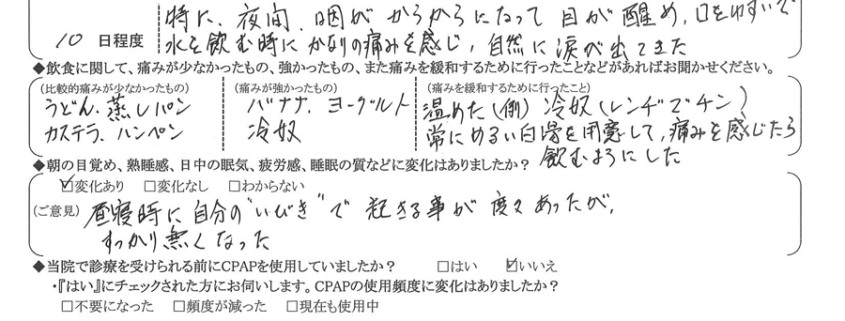 特に、夜間、咽がからからになって目が醒め、口をゆすいで
10 日程度 水を飲む時にかなりの痛みを感じ、自然に涙が出てきた
◆飲食に関して、痛みが少なかったもの、強かったもの、また痛みを緩和するために行ったことなどがあればお聞かせください。
(比較的痛みが少なかったもの) (痛みが強かったもの) (痛みを緩和するために行ったこと)
うどん、蒸しパン バナナ、ヨーグルト 温めた(例)冷奴(レンヂでチン)
カステラ、ハンペン 冷奴 常にぬるい白湯を用意して、痛みを感じたら
飲むようにした
◆朝の目覚め、熟睡感、日中の眠気、疲労感、睡眠の質などに変化はありましたか?
☑変化あり □変化なし □わからない
(ご意見) 昼寝時に自分の"いびき"で起きる事が度々あったが、
すっかり無くなった
◆当院で診療を受けられる前にCPAPを使用していましたか? □はい ☑いいえ
・『はい』にチェックされた方にお伺いします。CPAPの使用頻度に変化はありましたか?
□不要になった □頻度が減った □現在も使用中